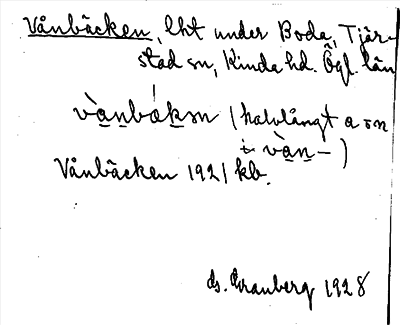 Vånbäcken, lht under Boda, Tjär-
stad sn, Kinda hd. Ögl. län
vànbákn (halvlångt a
i vàn-)
Vånbäcken 1921 kb.
ds. Granberg 1928